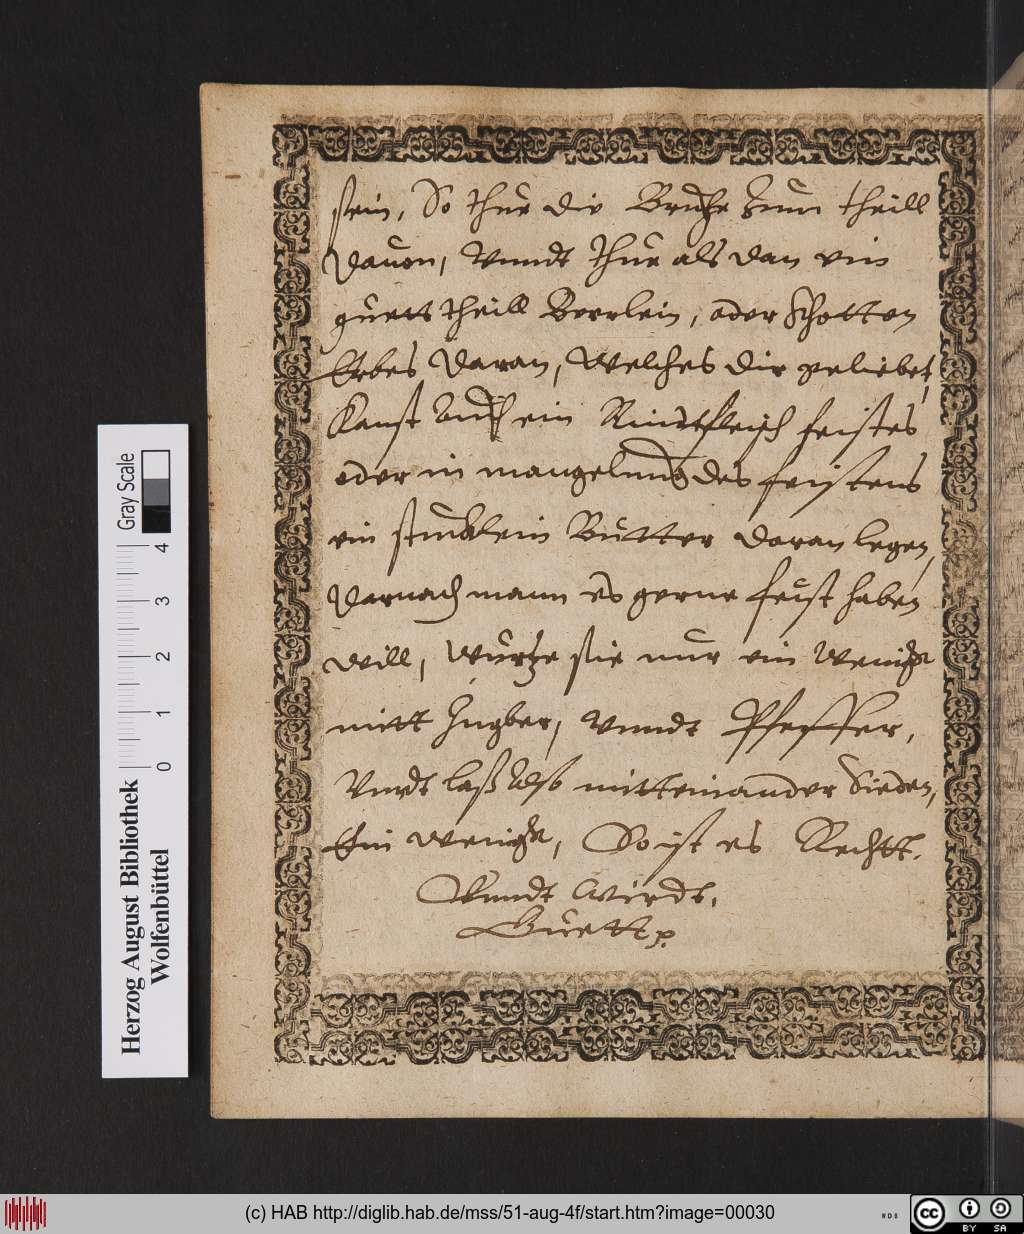 sein, So thue die Bruhe Zum theill
Dauon, Vnndt thue als dan ein
guett theill Beerlein, oder Schotten
Erbes daran, Welches dir geliebet,
Kanst auch ein Rindtfleisch feistes
oder in mangelung des feistens
ein stucklein Butter daran legen,
Darnach mann es gerne feist haben
will, Wurtze sie nur ein Wenig
mitt Ingber, Vnndt Pfeffer,
Vndt laß also mitteinander Sieden,
Ein Wenig, So ist es Rechtt.
Vnndt Wirdt.
Guett
Herzog August Bibliothek
Wolfenbüttel
0 1 2 3 4
Gray Scale
(c) HAB http://diglib.hab.de/mss/51-aug-4f/start.htm?image=00030
WDB
cc BY SA